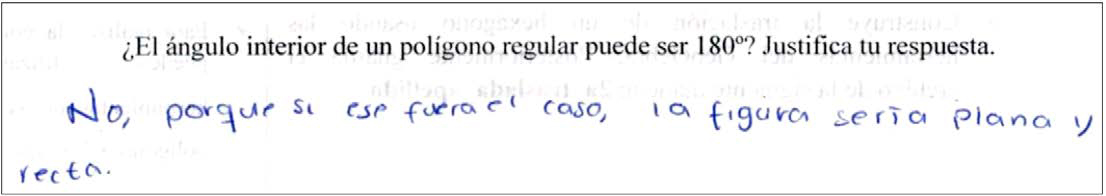 ¿El ángulo interior de un polígono regular puede ser 180º? Justifica tu respuesta.
No, porque si ese fuera el caso, la figura sería plana y
recta.